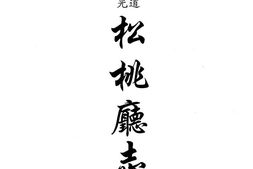 道光
松桃廳志